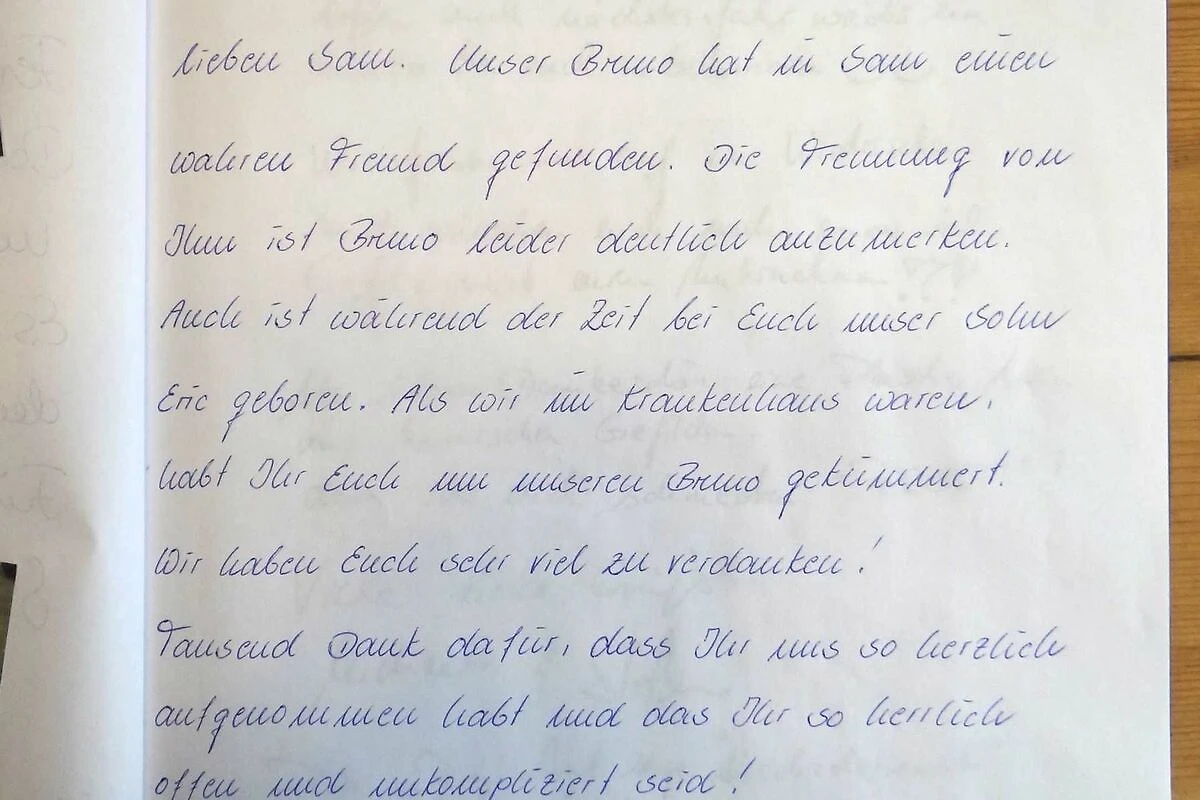 lieben Sam. Unser Bruno hat in Sam einen
wahren Freund gefunden. Die Trennung von
Ihm ist Bruno leider deutlich anzumerken.
Auch ist während der Zeit bei Euch unser Sohn
Eric geboren. Als wir im Krankenhaus waren,
habt Ihr Euch um unseren Bruno gekümmert.
Wir haben Euch sehr viel zu verdanken!
Tausend Dank dafür, dass Ihr uns so herzlich
aufgenommen habt und das Ihr so herrlich
offen und unkompliziert seid!